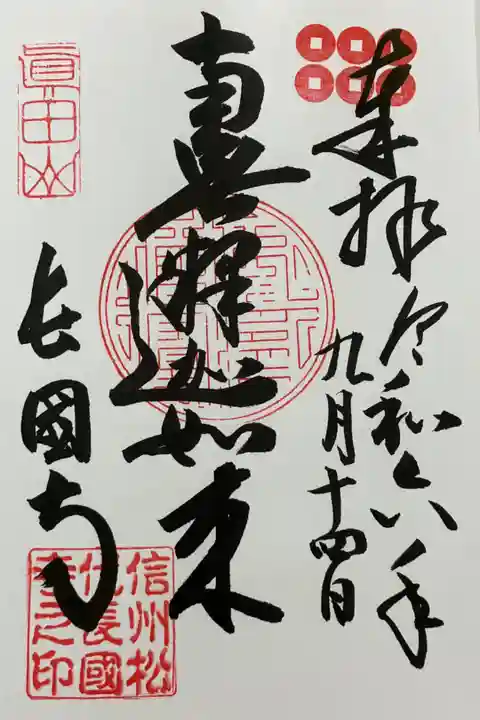 奉拝 令和六年
九月十四日
釋迦如来
眞田山
長國寺
信州松
代長國
寺之印